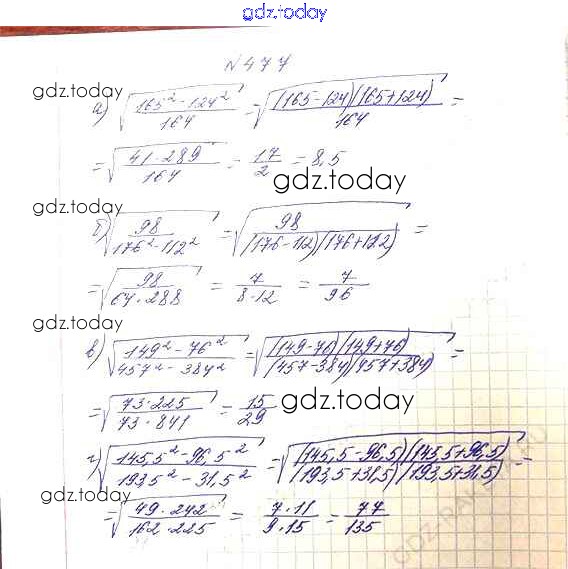 gdz.today
№477
gdz.today
а) √((165² - 124²)/164) = √((165-124)(165+124)/164) =
= √((41·289)/164) = 17/2 = 8,5
gdz.today
gdz.today
б) √(98/(176² - 112²)) = √(98/((176-112)(176+112))) =
= √(98/(64·288)) = 7/(8·12) = 7/96
gdz.today
в) √((149² - 76²)/(457² - 384²)) = √((149-76)(149+76)/((457-384)(457+384))) =
= √((73·225)/(73·841)) = 15/29
gdz.today
г) √((145,5² - 96,5²)/(193,5² - 31,5²)) = √((145,5-96,5)(145,5+96,5)/((193,5+31,5)(193,5+31,5))) =
gdz.today
= √((49·242)/(162·225)) = (7·11)/(9·15) = 77/135